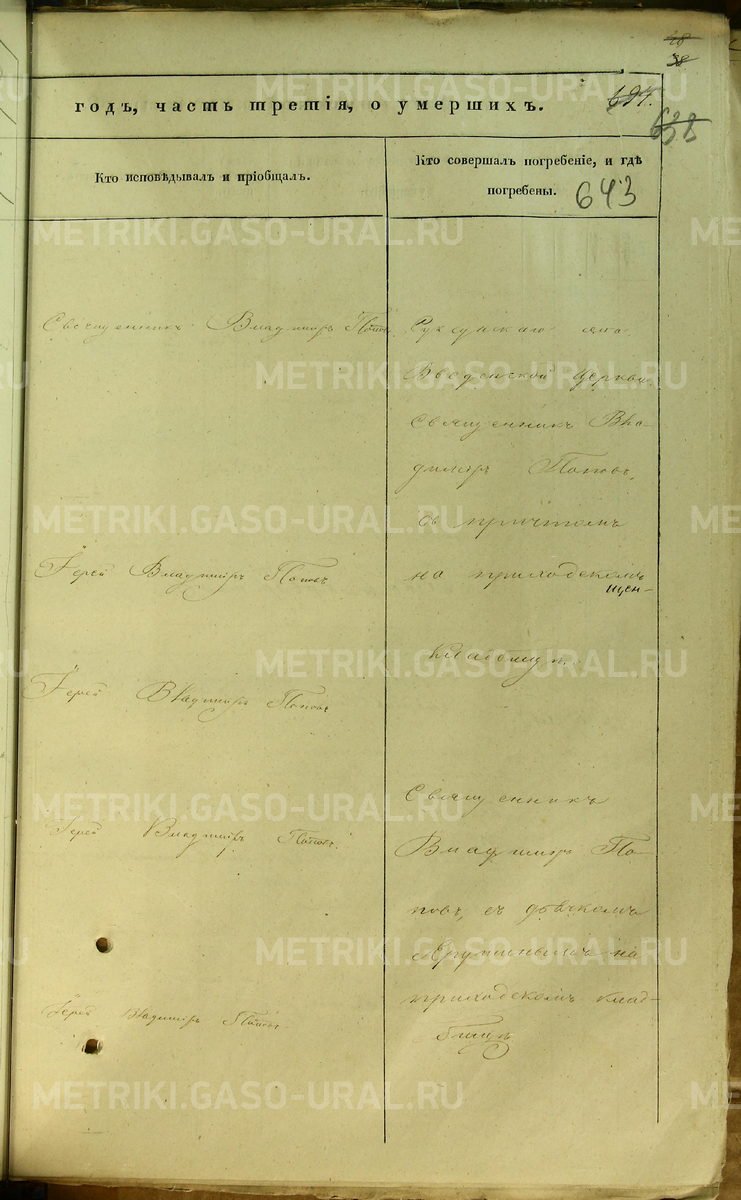 28
38
годъ, часть третія, о умершихъ.
638
Кто исповѣдывалъ и пріобщалъ.
Кто совершалъ погребеніе, и гдѣ
погребены.
643
Священникъ Владиміръ Поповъ
Суксунскаго
Введенской Церкви
Священникъ Вла-
диміръ Поповъ,
съ причтомъ
на приходскомъ
кладбищѣ.
Іерей Владиміръ Поповъ
Іерей Владиміръ Поповъ
Іерей Владиміръ Поповъ.
Іерей Владиміръ Поповъ.
Священникъ
Владиміръ По-
повъ, съ дьячкомъ
на
приходскомъ клад-
бищѣ
METRIKI.GASO-URAL.RU